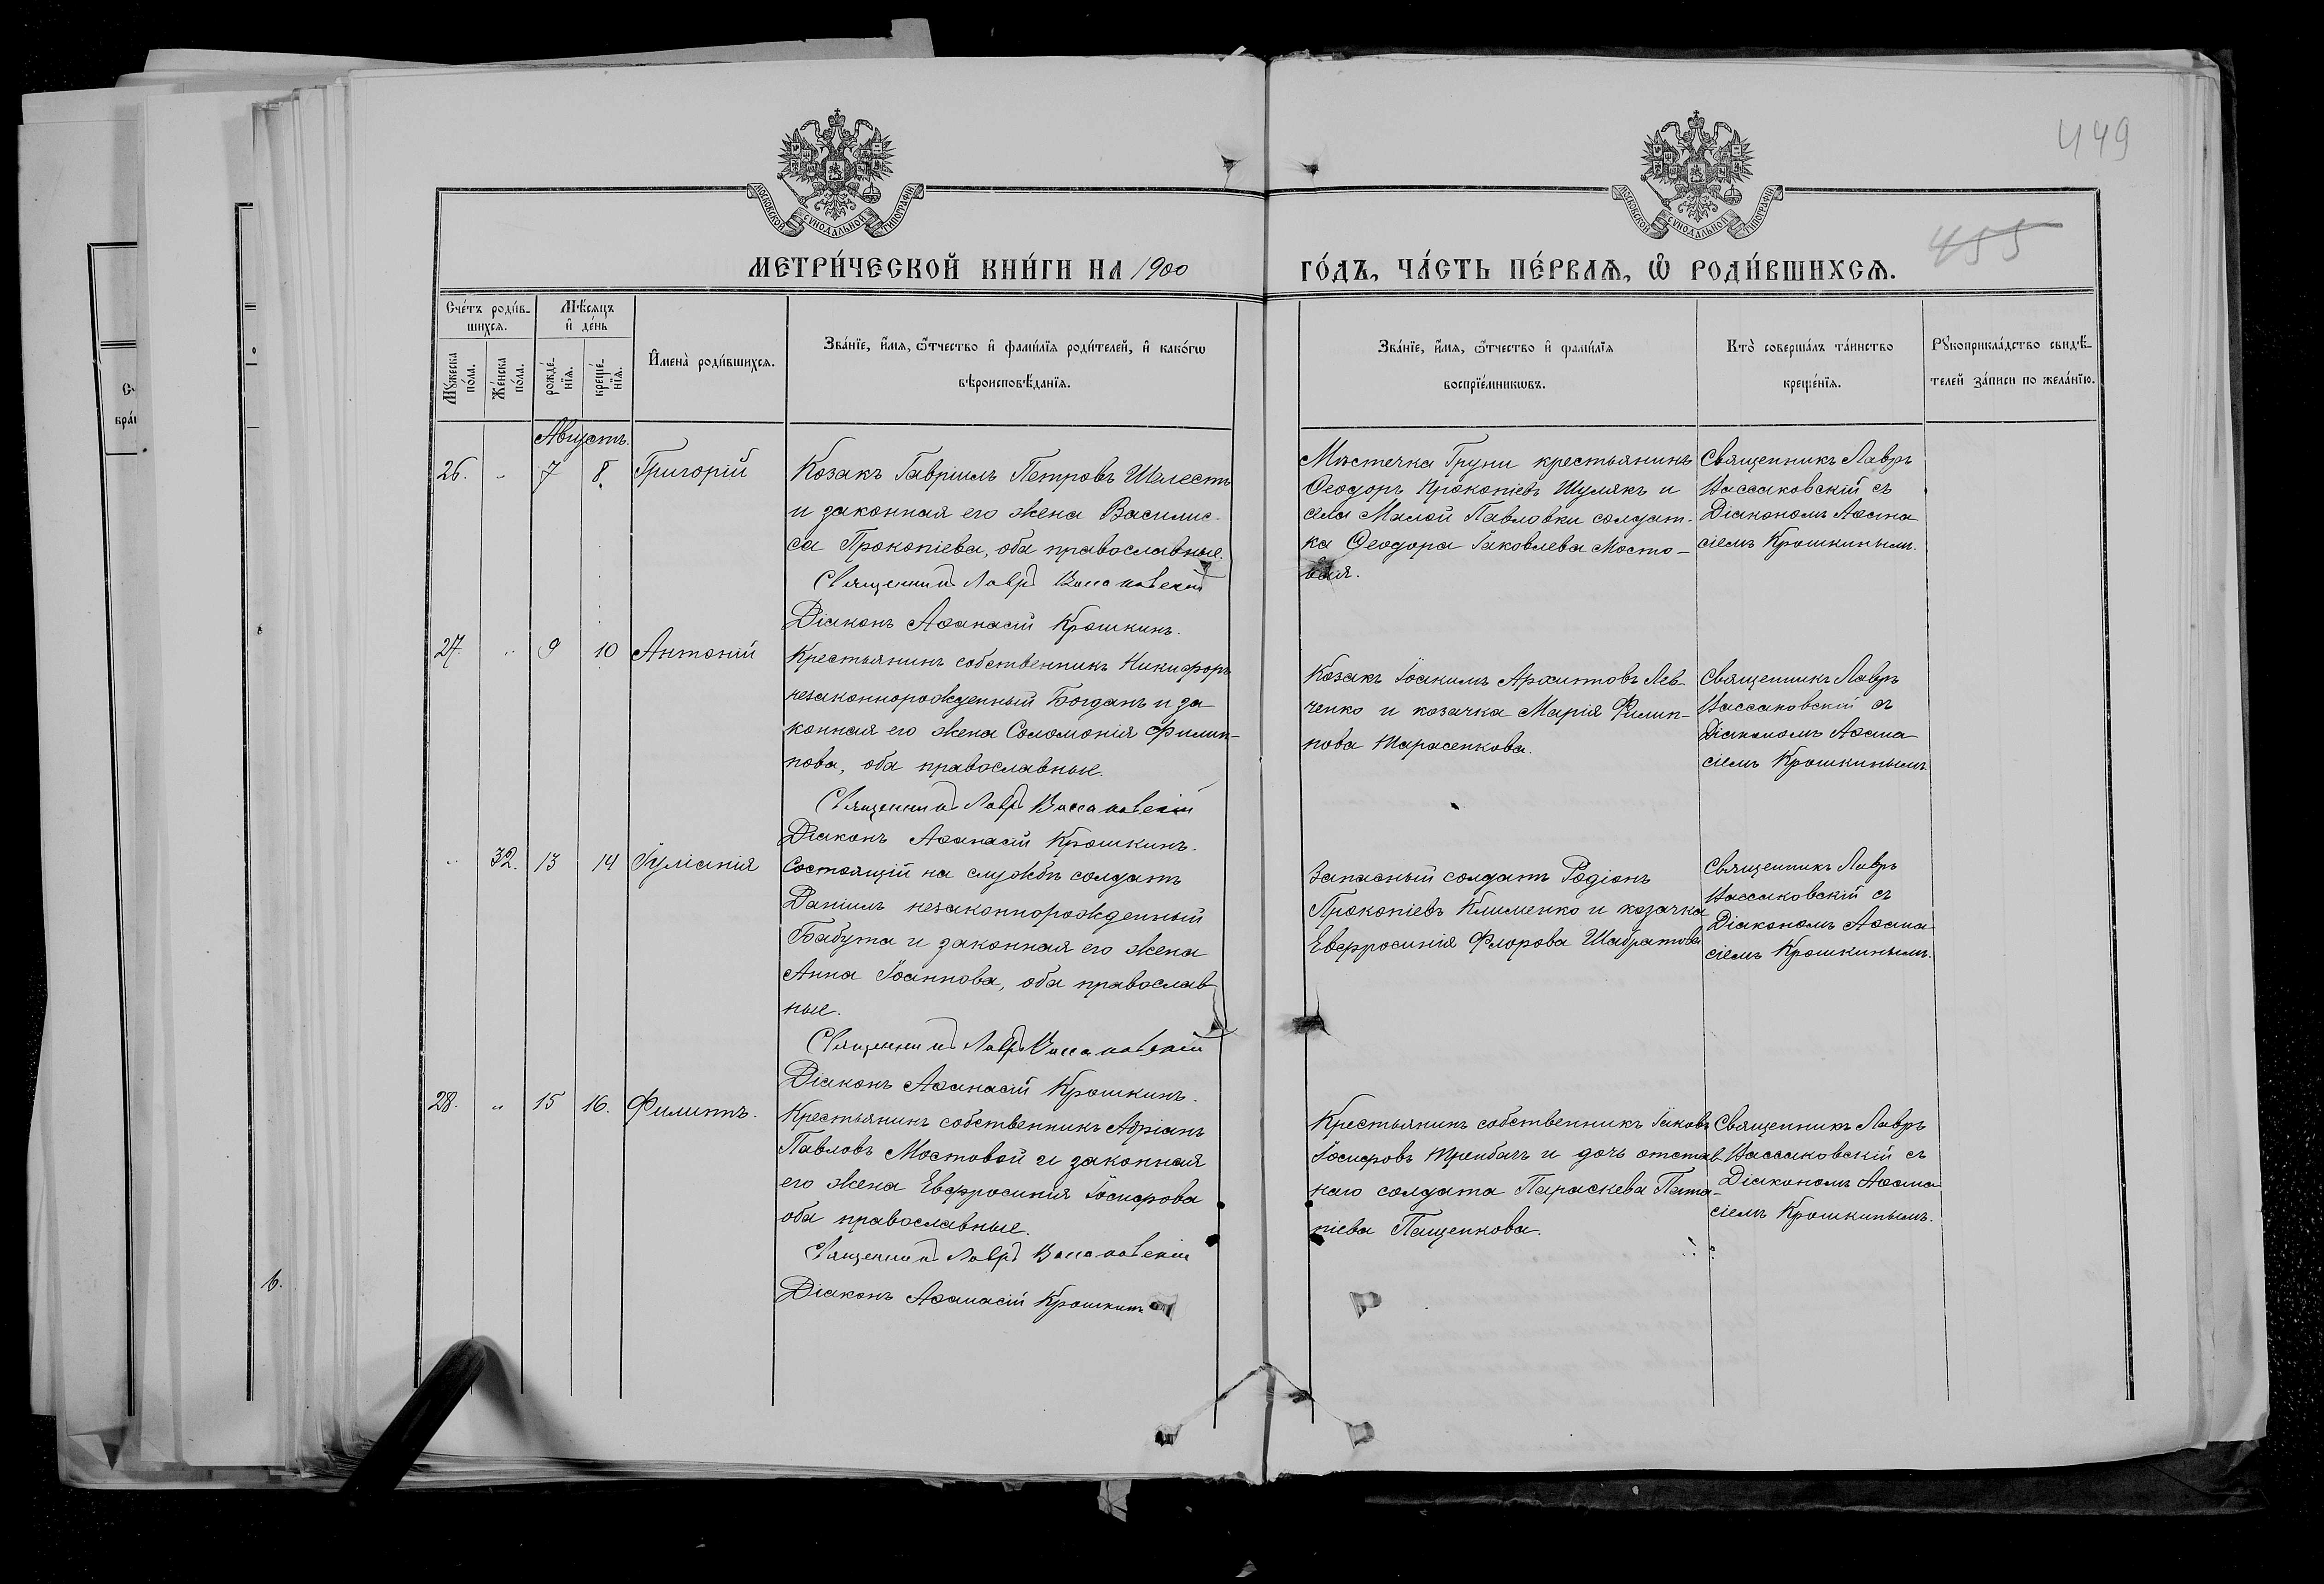 449
455
МОСКОВСКОЙ СУНОДАЛЬНОЙ ТИПОГРАФІИ
МОСКОВСКОЙ СУНОДАЛЬНОЙ ТИПОГРАФІИ
МЕТРИ́ЧЕСКОЙ КНИ́ГИ НА 1900
ГО́ДЪ, ЧА́СТЬ ПЕ́РВАѦ, Ѽ РОДИ́ВШИХСѦ.
Сче́тъ роди́в-
шихсѧ.
Мѣ́сѧцъ
и҆ де́нь
Мꙋ́жеска
по́ла.
Же́нска
по́ла.
рожде́-
нїѧ.
креще́-
нїѧ.
И҆мена̀ роди́вшихсѧ.
Зва́нїе, и҆́мѧ, ѻ҆́тчество и҆ фами́лїѧ роди́телей, и҆ како́гѡ
вѣроисповѣ́данїѧ.
Зва́нїе, и҆́мѧ, ѻ҆́тчество и҆ фами́лїѧ
воспрїе́мникѡвъ.
Кто̀ соверша́лъ та́инство
креще́нїѧ.
Рꙋкоприкла́дство свидѣ́-
телей за́писи по жела́нїю.
Августъ.
26. „ 7 8. Григорій
Козакъ Гавріилъ Петровъ Шелестъ
и законная его жена Василис-
са Прокопіева, оба православные.
Священникъ Лавръ Вассаковскій
Діаконъ Аѳанасій Крошкинъ.
Мѣстечка Груни крестьянинъ
Ѳеодоръ Прокопіевъ Шулякъ и
села Малой Павловки солдат-
ка Ѳеодора Іаковлева Мосто-
вая.
Священникъ Лавръ
Вассаковскій съ
Діакономъ Аѳана
сіемъ Крошкинымъ.
27. „ 9 10 Антоній
Крестьянинъ собственникъ Никифоръ
незаконнорожденный Богданъ и за
конная его жена Соломонія Филип-
пова, оба православные.
Священникъ Лавръ Вассаковскій
Діаконъ Аѳанасій Крошкинъ.
Козакъ Іоакимъ Архиповъ Лев-
ченко и козачка Марія Филип-
пова Тарасенкова.
Священникъ Лавръ
Вассаковскій съ
Діакономъ Аѳана
сіемъ Крошкинымъ
„ 32. 13 14 Іуліанія
Состоящій на службѣ солдатъ
Даніилъ незаконнорожденный
Бабута и законная его жена
Анна Іоаннова, оба православ
ные.
Священникъ Лавръ Вассаковскій
Діаконъ Аѳанасій Крошкинъ.
Запасный солдатъ Родіонъ
Прокопіевъ Клименко и козачка
Евфросинія Флорова Шабратова
Священникъ Лавръ
Вассаковскій съ
Діакономъ Аѳана-
сіемъ Крошкинымъ.
28. „ 15 16. Филиппъ.
Крестьянинъ собственникъ Адріанъ
Павловъ Мостовой и законная
его жена Евфросинія Іосифова
оба православные.
Священникъ Лавръ Вассаковскій
Діаконъ Аѳанасій Крошкинъ
Крестьянинъ собственникъ Іаковъ
Іосифовъ Трембачъ и дочь отстав-
наго солдата Параскева Пата-
піева Пащенкова.
Священникъ Лавръ
Вассаковскій съ
Діакономъ Аѳана-
сіемъ Крошкинымъ.